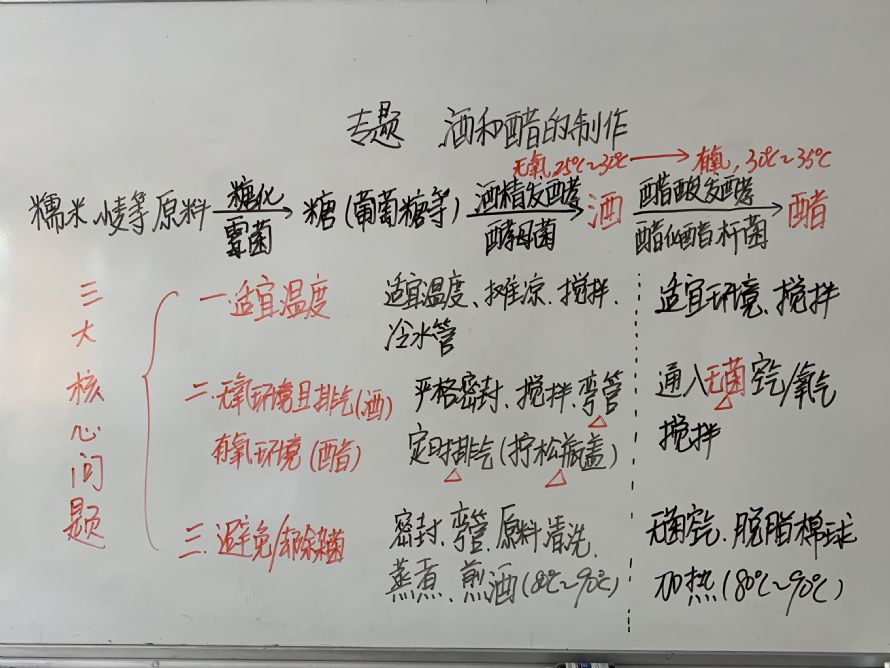 专题 酒和醋的制作
无氧,25℃~30℃ → 有氧,30℃~35℃
糯米、小麦等原料 糖化 霉菌 → 糖(葡萄糖等) 酒精发酵 酵母菌 → 酒 醋酸发酵 醋化醋杆菌 → 醋
三大核心问题
一.适宜温度 适宜温度、摊凉、搅拌、 适宜环境、搅拌
冷水管
二.无氧环境且排气(酒) 严格密封、搅拌、弯管 通入无菌空气/氧气
有氧环境(醋) 定时排气(拧松瓶盖) 搅拌
三.避免/去除杂菌 密封、弯管、原料清洗、 无菌空气、脱脂棉球
蒸煮、煎酒(80℃~90℃) 加热(80℃~90℃)